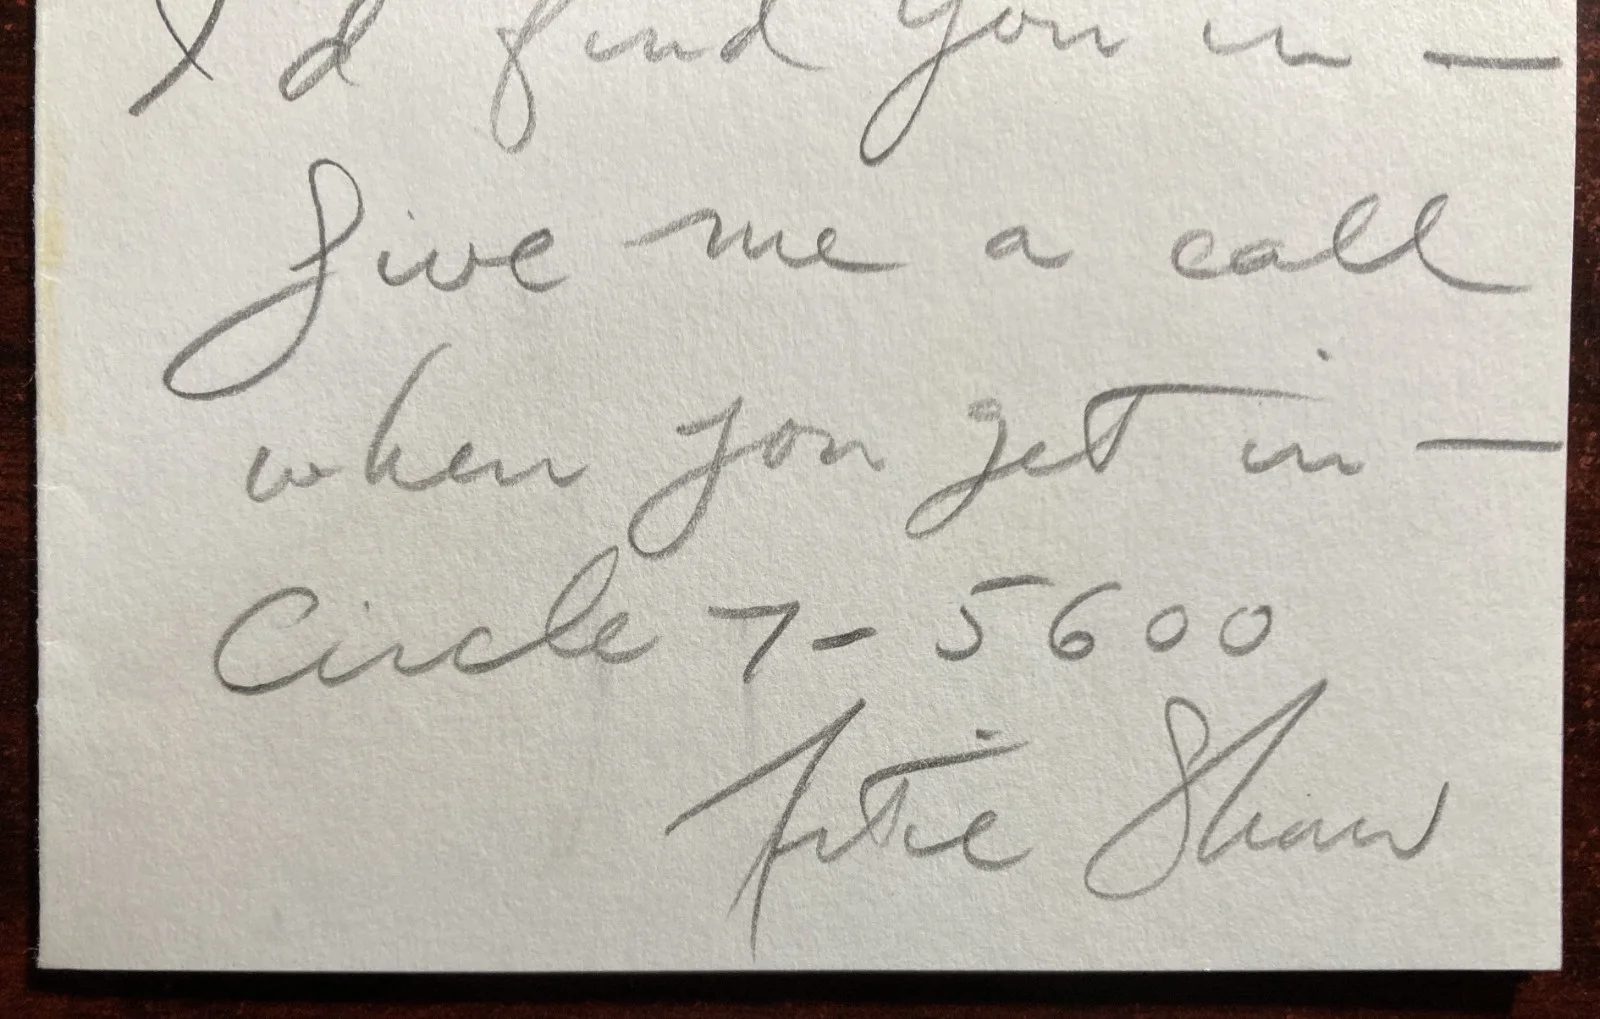 I'd find you in —
Give me a call
when you get in —
Circle 7 - 5600
Artie Shaw